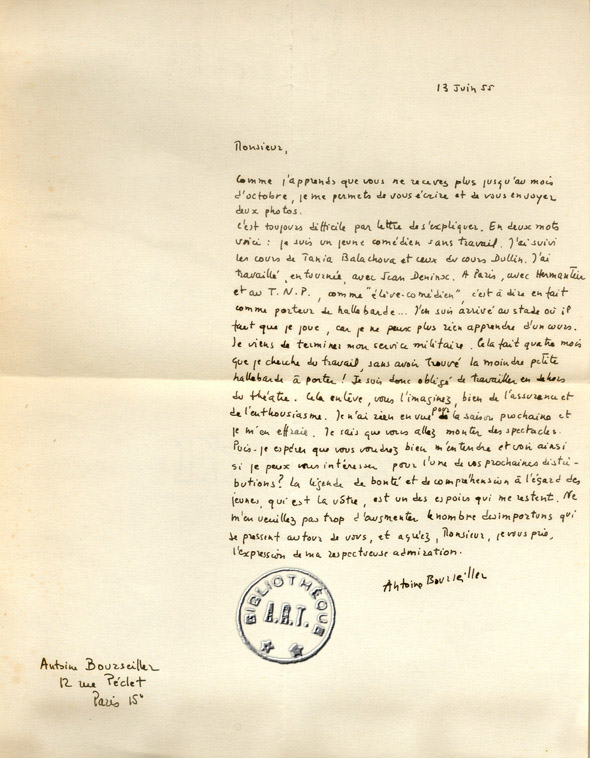 13 Juin 55
Monsieur,
Comme j'apprends que vous ne recevez plus jusqu'au mois
d'octobre, je me permets de vous écrire et de vous envoyer
deux photos.
C'est toujours difficile par lettre de s'expliquer. En deux mots
voici : je suis un jeune comédien sans travail. J'ai suivi
les cours de Tania Balachova et ceux du cours Dullin. J'ai
travaillé, en tournée, avec Jean Deninx. A Paris, avec Hermantier
et au T.N.P., comme "élève-comédien", c'est à dire en fait
comme porteur de hallebarde... J'en suis arrivé au stade où il
faut que je joue, car je ne peux plus rien apprendre d'un cours.
Je viens de terminer mon service militaire. Cela fait quatre mois
que je cherche du travail, sans avoir trouvé la moindre petite
hallebarde à porter ! Je suis donc obligé de travailler en dehors
du théatre. Cela enlève, vous l'imaginez, bien de l'assurance et
de l'enthousiasme. Je n'ai rien en vue pour la saison prochaine et
je m'en effraie. Je sais que vous allez monter des spectacles.
Puis-je espérer que vous voudrez bien m'entendre et voir ainsi
si je peux vous intéresser pour l'une de vos prochaines distri-
butions ? La légende de bonté et de compréhension à l'égard des
jeunes, qui est la vôtre, est un des espoirs qui me restent. Ne
m'en veuillez pas trop d'augmenter le nombre des importuns qui
se pressent autour de vous, et agréez, Monsieur, je vous prie,
l'expression de ma respectueuse admiration.
Antoine Bourseiller
BIBLIOTHÈQUE
A.R.T.
Antoine Bourseiller
12 rue Péclet
Paris 15e